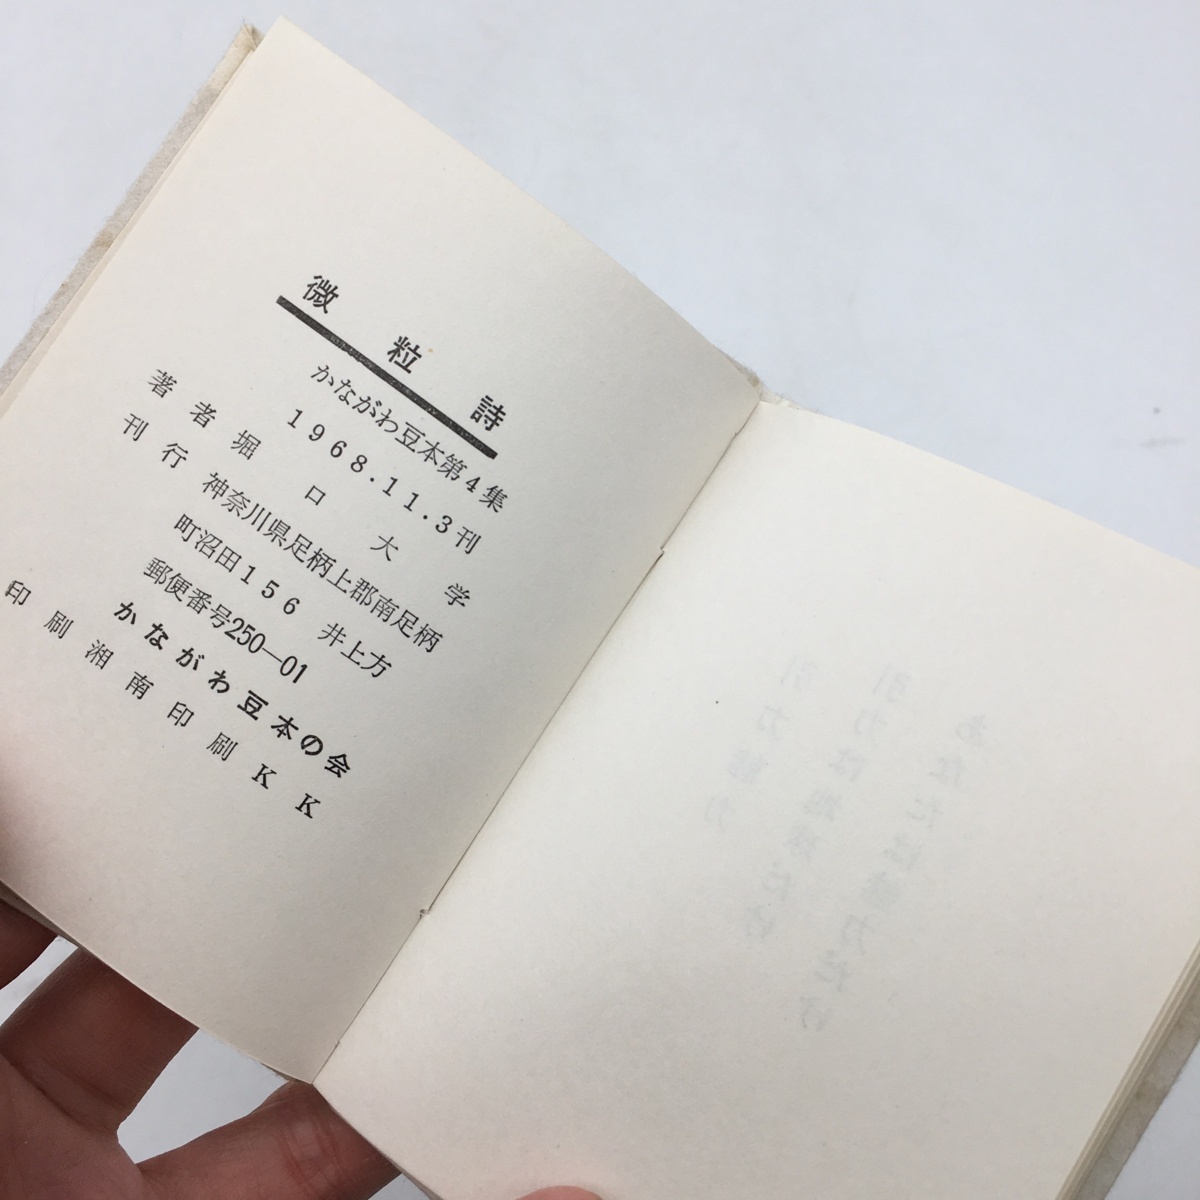 微粒詩
かながわ豆本第4集
1968.11.3刊
著者堀口大学
刊行 神奈川県足柄上郡南足柄
町沼田156 井上方
郵便番号250—01
かながわ豆本の会
印刷湘南印刷KK